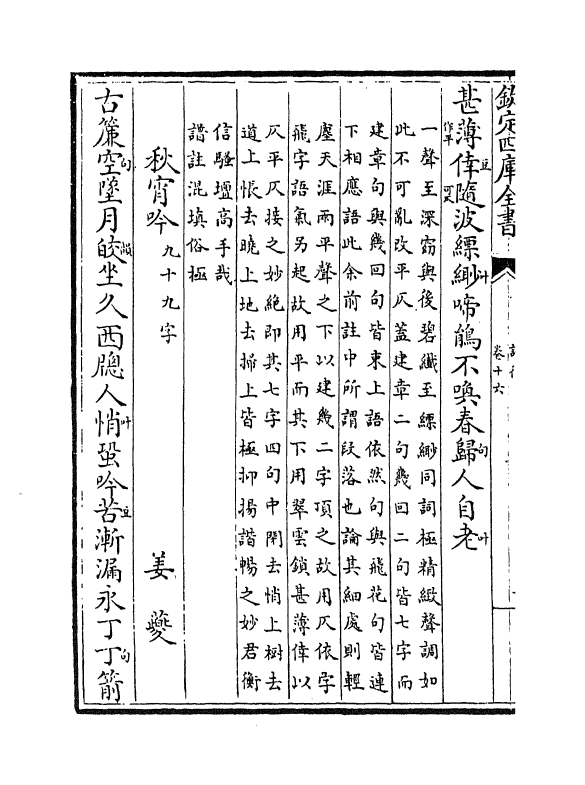 欽定四庫全書
卷十六
甚薄倖豆隨波縹緲叶啼鵑不喚春歸句人自老叶
作平 可仄
一聲至深窈與後碧纖至縹緲同詞極精緻聲調如
此不可亂改平仄蓋建章二句幾回二句皆七字而
建章句與幾回句皆束上語依然句與飛花句皆連
下相應語此余前註中所謂段落也論其細處則輕
塵天涯兩平聲之下以建幾二字項之故用仄依字
飛字語氣另起故用平而其下用翠雲鎖甚薄倖以
仄平仄接之妙絶即其七字四句中閉去悄上樹去
道上悵去曉上地去掃上皆極抑揚諧暢之妙君衡
信騷壇高手哉
譜註混填俗極
秋宵吟 九十九字 姜夔
古簾空句墜月皎韻坐久西牕人悄叶蛩吟苦豆漸漏永丁丁句箭